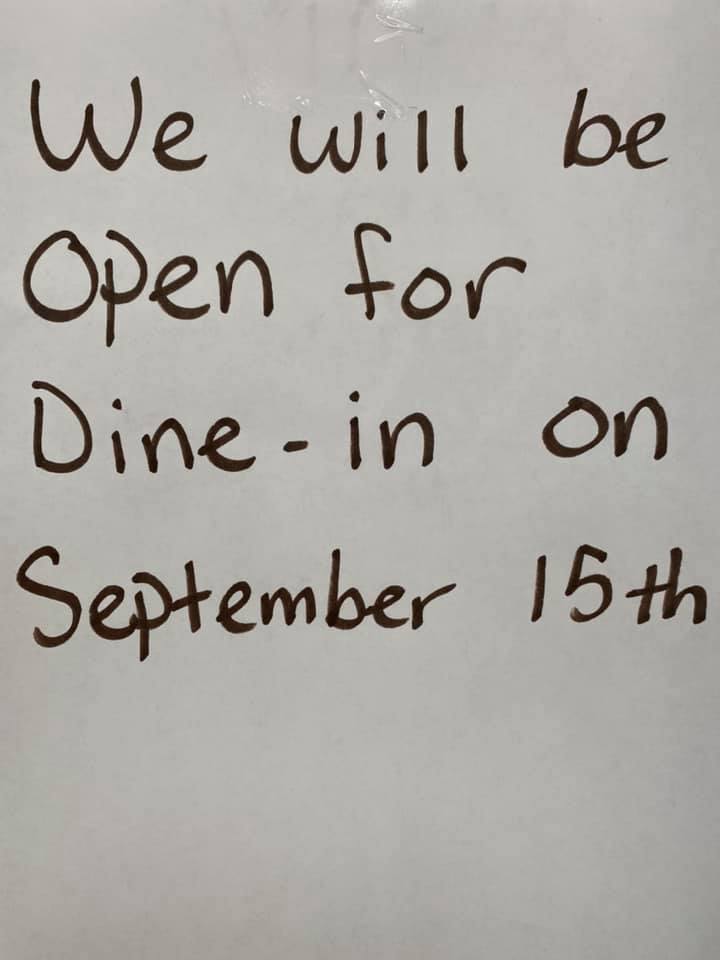 We will be
Open for
Dine-in on
September 15th